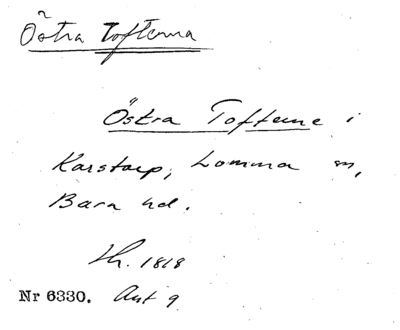 Östra Tofterna
Östra Tofterne i
Karstorp, Lomma sn,
Bara hd.
Lh. 1818
Nr 6330. Ant 9